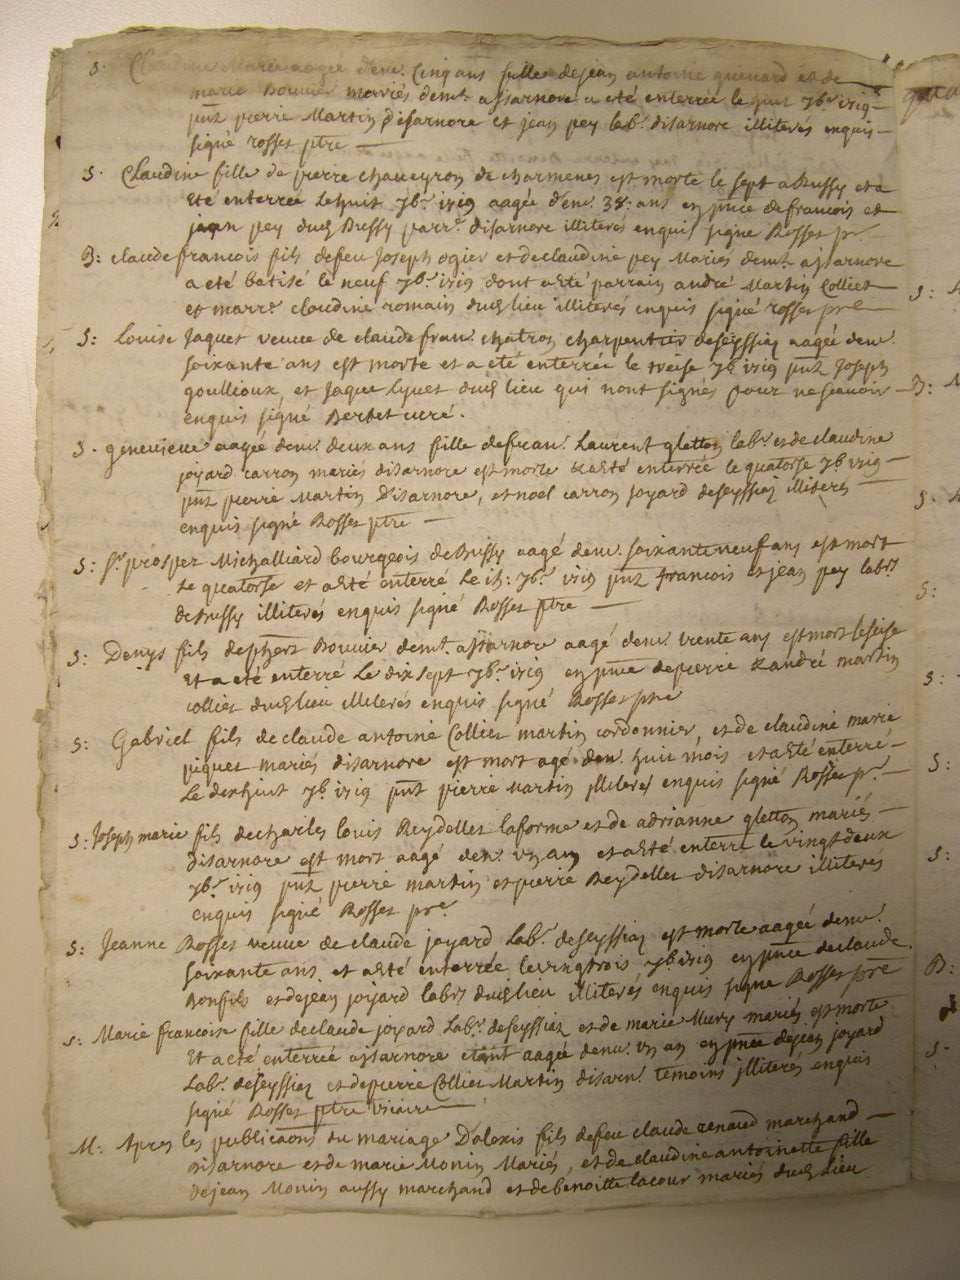 S. Claudine Marie aagée d'env. Cinq ans fille de jean antoine guenard et de
marie Bouvier mariés dem.t a jsarnore a eté enterrée le huit 7b.r 1719
pnt pierre Martin d'isarnore et jean pey lab.r disarnore illiterés enquis
signé rosset ptre
S. Claudine fille de pierre chaveyron de charmenes est morte le sept a Bussy et a
Eté enterrée le huit 7b.r 1719 aagée d'env. 38. ans en pnce de francois et
jean pey dud Bussy parr.e disarnore illiterés enquis signé Rosset pr.
B: claude francois fils de feu Joseph ogier et de claudine pey Mariés dem.t a jsarnore
a eté batisé le neuf 7b.r 1719 dont a eté parrain andré Martin Collier
et marr.e claudine romain dud lieu illiterés enquis signé rosset pre
S: Louise Jaquet veuve de claude fran. chatron charpentier de seyssiaz aagée denv.
soixante ans est morte et a eté enterrée le treise 7b 1719 pnt Joseph
goullioux, et Jaque Lyvet dud lieu qui nont signés pour ne scavoir
enquis signé Bertet curé.
S. genevieve aagée denv. deux ans fille de fran. Laurent gletton lab.r et de claudine
joyard carron mariés disarnore est morte et a eté enterrée le quatorse 7b 1719
pnt pierre Martin Disarnore, et noel carron joyard de seyssiaz illiterés
enquis signé Rosset ptre
S: S.r prosper Michalliard bourgeois de Bussy aagé denv. soixante neuf ans est mort
Le quatorse et a eté enterré Le 15: 7b.r 1719 pnt francois et jean pey lab.rs
de Bussy illiterés enquis signé Rosset ptre
S: Denys fils de phert Bouvier dem.t a jsarnore aagé denv. trente ans est mort le seise
Et a eté enterré Le dix sept 7b.r 1719 en pnce de pierre & andré martin
collier dud lieu illiterés enquis signé Rosset pre
S: Gabriel fils de claude antoine Collier martin cordonnier, et de claudine marie
piquet mariés disarnore est mort agé denv. huit mois et a eté enterré
Le dixhuit 7b.r 1719 pnt pierre Martin jlliterés enquis signé Rosset p.r
S: Joseph marie fils de charles louis Reydellet laforme et de adrianne gletton mariés
disarnore est mort aagé denv. un an et a eté enterré le vingt deux
7b.r 1719 pnt pierre martin et pierre Reydellet disarnore illiterés
enquis signé Rosset pre
S: Jeanne Rosset veuve de claude joyard Lab.r de seyssiaz est morte aagée denv.
soixante ans et a eté enterrée le vingt trois 7b 1719 en pnce de claude
Bonfils et de jean joyard lab.rs dud lieu illiterés enquis signé Rosset pre
S: Marie francoise fille de claude joyard Lab.r de seyssiaz et de marie Mury mariés est morte
Et a eté enterrée a jsarnore etant aagée denv. un an en pnce de jean joyard
Lab.r de seyssiaz et de pierre Collier Martin disarn. temoins jlliterés enquis
signé Rosset ptre vicaire
M: Apres les publicaons du mariage D'alexis fils de feu claude renaud marchand
disarnore et de marie Monin Mariés, et de claudine antoinette fille
de jean Monin aussy marchand et de benoitte lacour mariés dud lieu